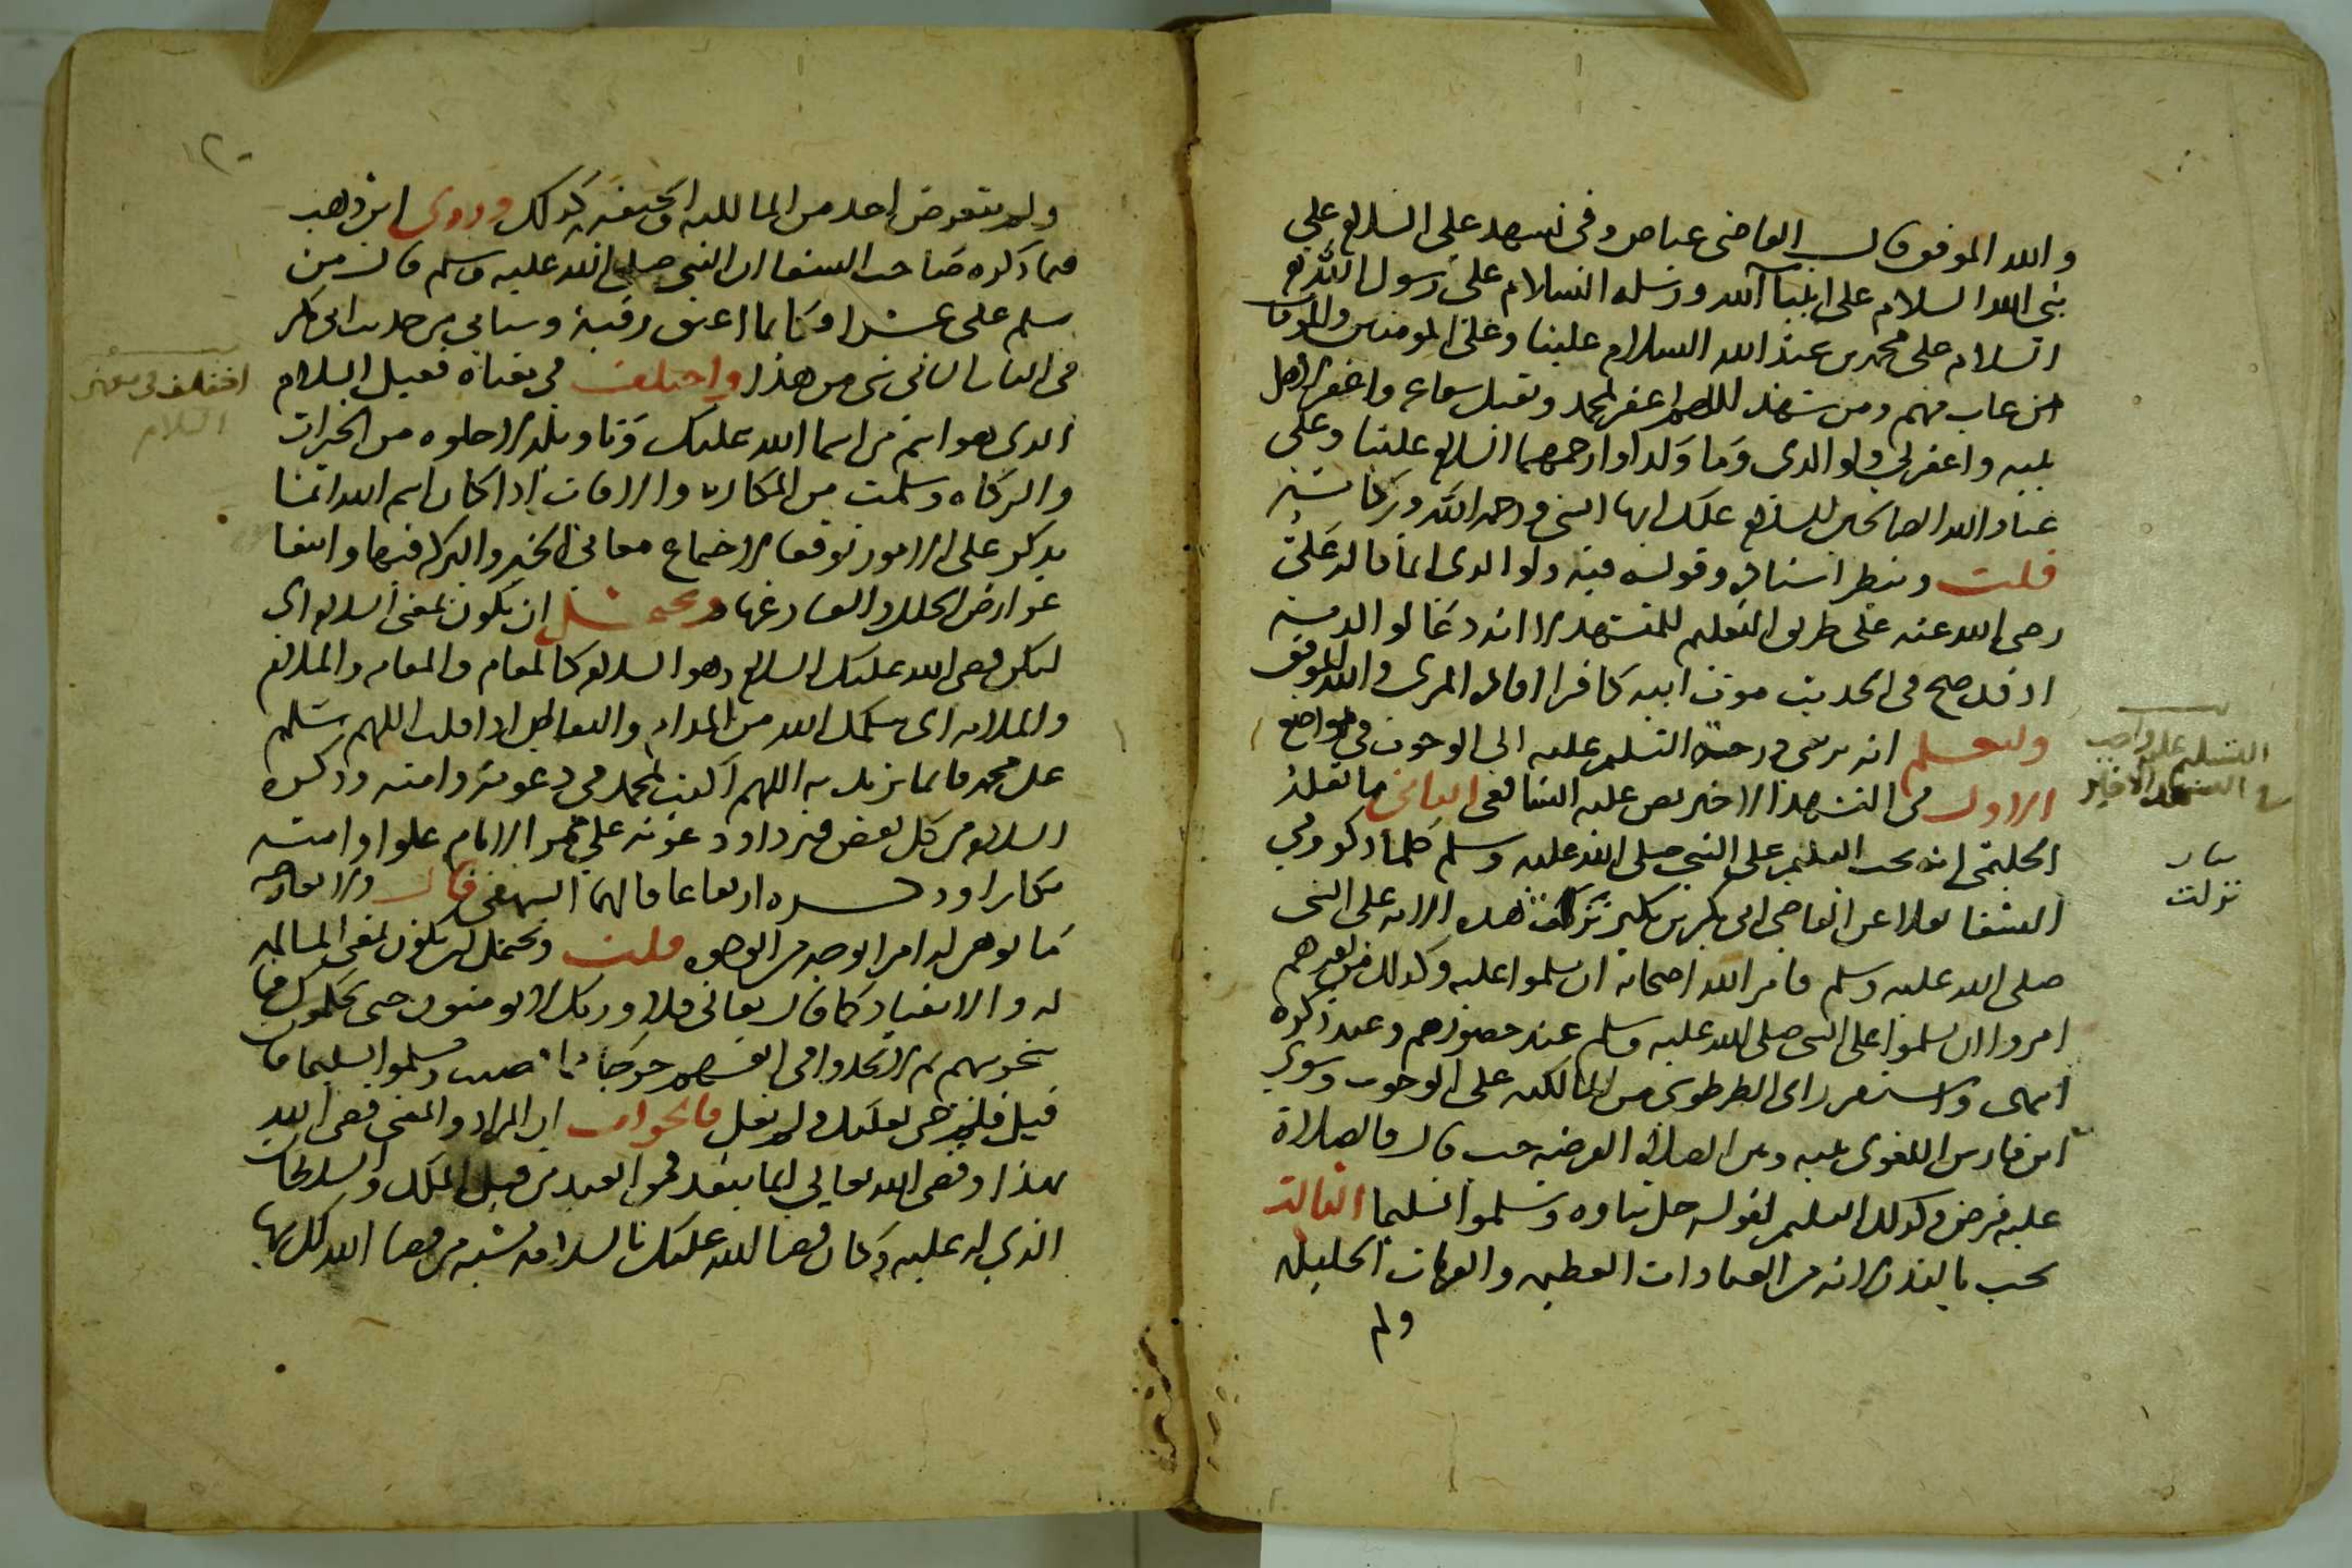 والله الموفق قال القاضي عياض وفي تشهد علي السلام علي
نبي الله السلام على انبيآ الله ورسله السلام على رسول الله
السلام على محمد بن عبد الله السلام علينا وعلى المومنين والمومنات
من غاب منهم ومن شهد اللهم اغفر لمحمد وتقبل شفاعته واغفر لاهل
بيته واغفر لي ولوالدي وما ولدا وارحمهما السلام علينا وعلى
عباد الله الصالحين السلام عليك ايها النبي ورحمة الله وبركاته
قلت وينظر اسناده وقوله فيه ولوالدي انما قاله علي
رضي الله عنه على طريق التعليم للمتشهد لا انه دعا لوالديه
اذ قد صح في الحديث موت ابيه كافرا المزي والله الموفق
وليعلم انه يرتقي درجة التسليم عليه الى الوجوب في مواضع
الاول في التشهد الاخير نص عليه الشافعي الثاني ما نقله
الحليمي انه يجب التسليم على النبي صلى الله عليه وسلم كلما ذكر وفي
الشفا نقلا عن القاضي ابي بكر بن بكير نزلت هذه الاية على النبي
صلى الله عليه وسلم فامر الله اصحابه ان يسلموا عليه وكذلك من بعدهم
امروا ان يسلموا على النبي صلى الله عليه وسلم عند حضورهم وعند ذكره
انتهى واستقر راى الطرطوشي من المالكية على الوجوب وسوى
ابن فارس اللغوي بينه وبين الصلاة الفرضية حيث قال فالصلاة
عليه فرض وكذلك التسليم لقوله جل ثناوه وسلموا تسليما الثالث
يجب بالنذر لانه من العبادات العظيمة والقربات الجليلة
ولم
التسليم عليه واجب
في التشهد الاخير
بيان
نزلت
١٢٠
ولم يتعرض احد من المالكية والحنفية كذلك وروى ابن وهب
فيما ذكره صاحب الشفا ان النبي صلى الله عليه وسلم قال من
سلم علي عشرا فكانما اعتق رقبة وسياتي من حديث ابي بكر
في الباب الثاني شي من هذا واختلف في معناه فقيل السلام
الذي هو اسم من اسما الله عليك وتاويله لا خلوت من الخيرات
والبركات وسلمت من المكاره والافات اذا كان اسم الله انما
يذكر على الامور توقعا لاجتماع معاني الخير والبركة فيها وانتفا
عوارض الخلل والفساد عنها ويحتمل ان يكون بمعنى السلام اي
ليكن قضى الله عليك السلام وهو السلام كالمقام والمقامة والملام
والملامة اي يسلمك الله من المذام والنقايص اذا قلت اللهم سلم
على محمد فانما تريد به اللهم اكتب لمحمد في دعوته وامته وذكره
السلام من كل نقص فيزداد دعوته على ممر الايام علوا وامته
تكاثرا وذكره ارتفاعا قالهما البيهقي قال ولا يعارضه
ما يوهم له امرا بوجه من الوجوه قلت ويحتمل ان يكون بمعنى المسالمة
له والانقياد كما قال تعالى فلا وربك لا يومنون حتى يحكموك فيما
شجر بينهم ثم لا يجدوا في انفسهم حرجا مما قضيت ويسلموا تسليما فان
قيل فلم عليك ولم يقل فالجواب ان المراد والمعنى قضى الله
بهذا وقضى الله تعالى انما ينفد في العبد من قبل الملك والسلطان
الذي له عليه وكان قضا الله عليك بالسلامة اشبه من قضا الله لك بها
اختلف في معنى
السلام